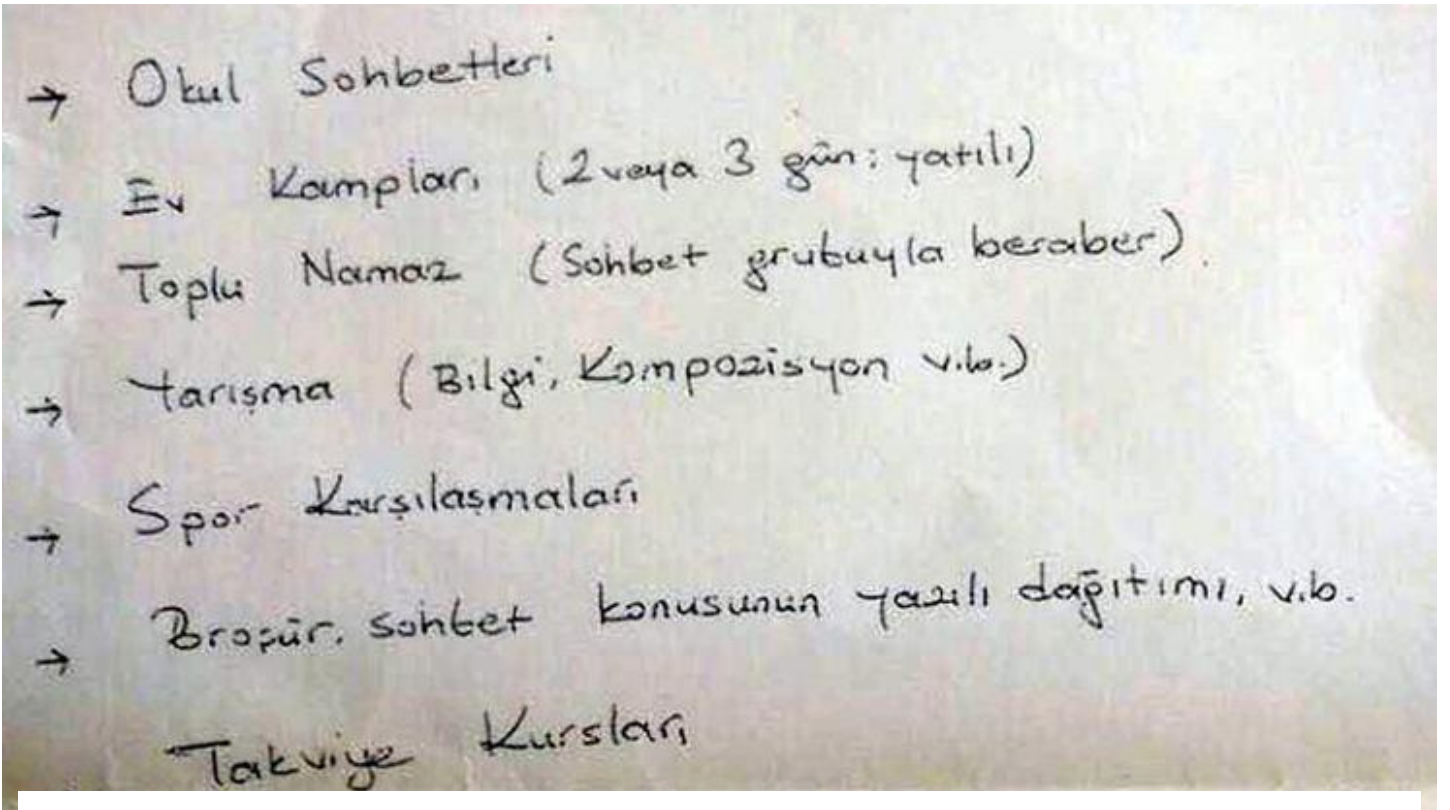 → Okul Sohbetleri
→ Ev Kampları (2 veya 3 gün: yatılı)
→ Toplu Namaz (Sohbet grubuyla beraber).
→ Yarışma (Bilgi, Kompozisyon v.b.)
→ Spor Karşılaşmaları
→ Broşür. sohbet konusunun yazılı dağıtımı, v.b.
Takviye Kursları